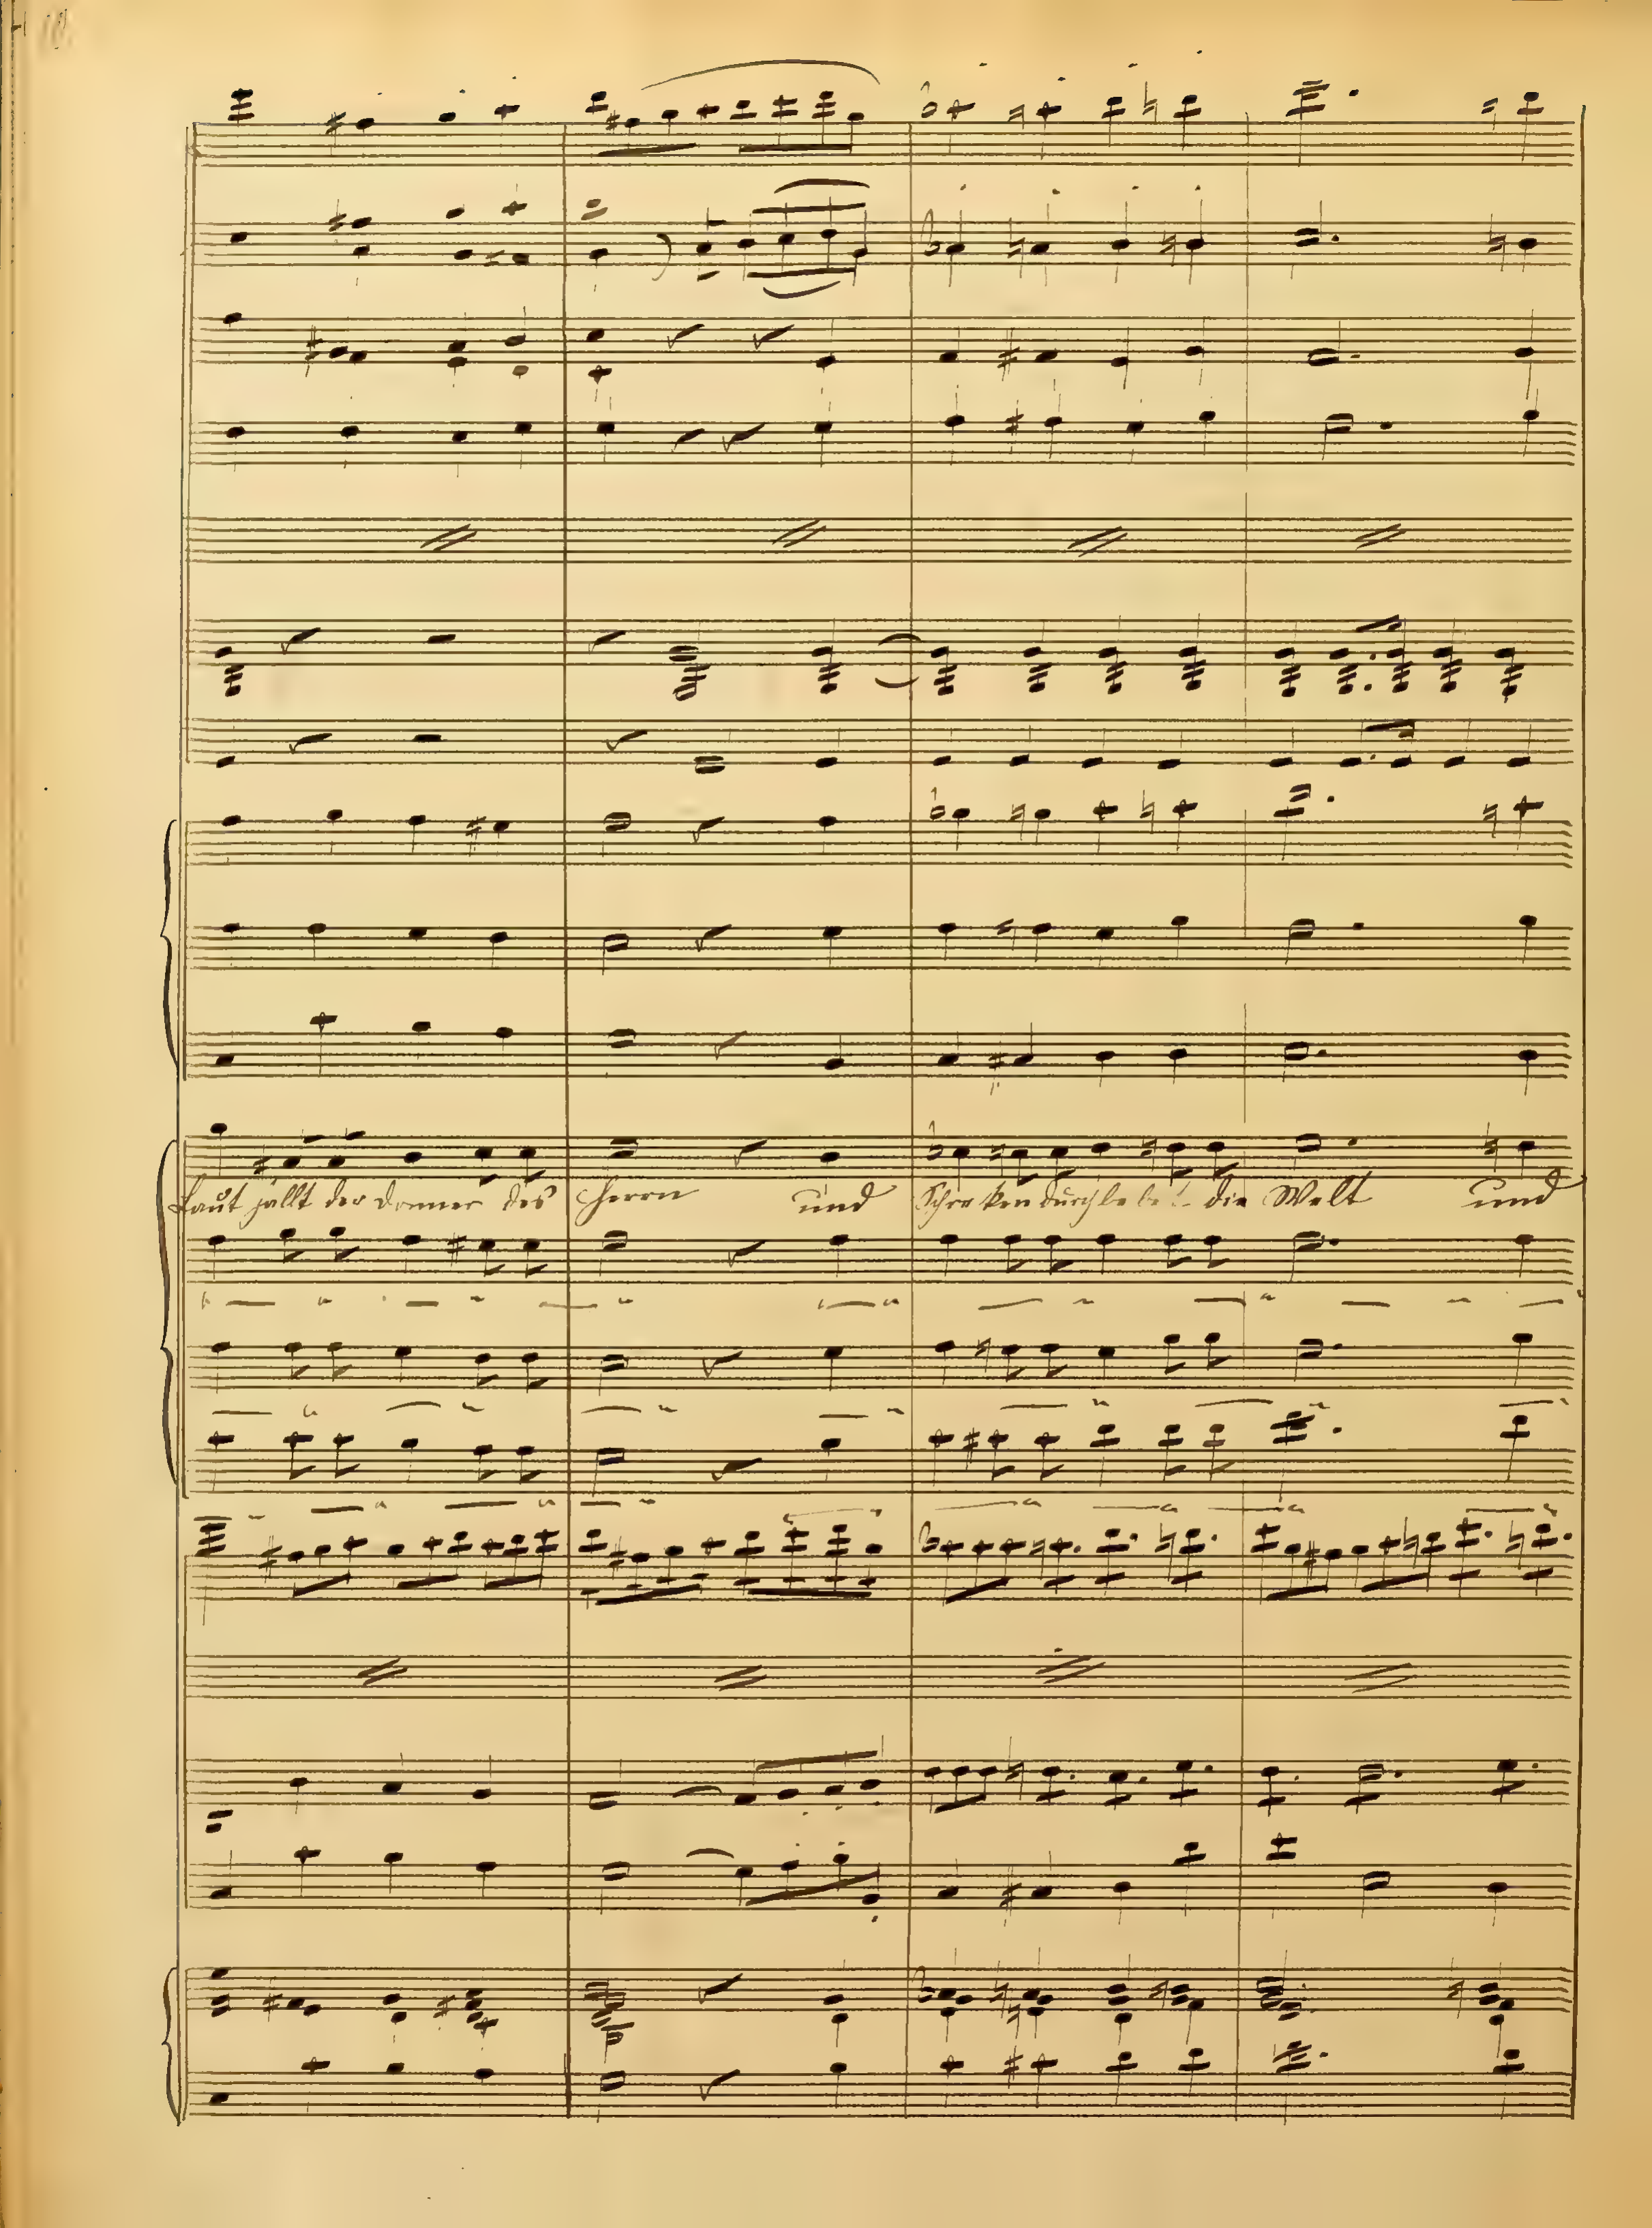 18.
Laut hallt der Donner des Herrn und Schrecken durchbebet die Welt und